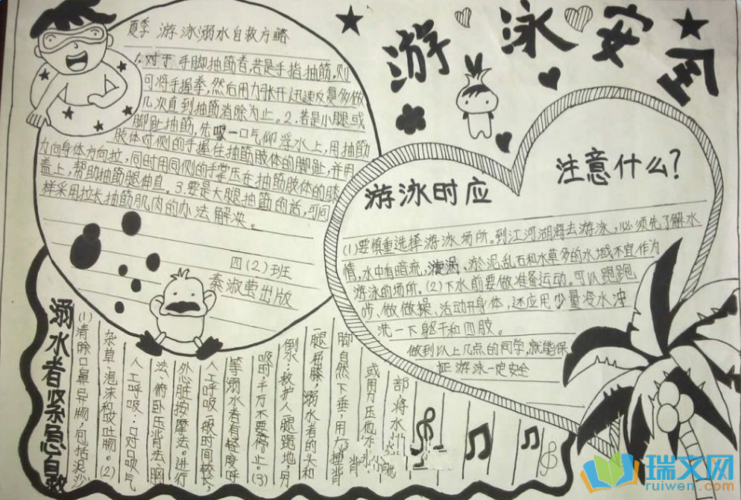 游泳安全
夏季 游泳溺水自救方略
1.对于手脚抽筋者,若是手指抽筋,则
可将手握拳,然后用力张开,迅速反复多做
几次直到抽筋消除为止。2.若是小腿或
脚趾抽筋,先吸一口气仰浮水上,用抽筋
肢体对侧的手握住抽筋肢体的脚趾,并用
力向身体方向拉,同时用同侧的手掌压在抽筋肢体的膝
盖上,帮助抽筋腿伸直。3.要是大腿抽筋的话,可同
样采用拉长抽筋肌肉的办法解决。
四(2)班
秦淑萤出版
游泳时应
注意什么?
(1)要慎重选择游泳场所。到江河湖海去游泳,必须先了解水
情,水中有暗流、漩涡、淤泥、乱石和水草多的水域不宜作为
游泳的场所。(2)下水前要做准备运动。可以跑跑
步、做做操,活动开身体,还应用少量冷水冲
洗一下躯干和四肢。
做到以上几点的同学,就能保
证游泳一定安全
溺水者紧急自救
(1)清除口鼻异物,包括泥沙
杂草、泡沫和呕吐物。(2)
人工呼吸:口对口吹气
法、俯卧压背法、胸
外心脏按摩法。进行
人工呼吸,
等溺水者有轻度呼
吸时千万不要停止。(3)
倒水:救护人腿跪地,另
一腿屈膝,溺水者的头和
脚自然下垂,用力
或用力压
部将水
瑞文网
ruiwen.com